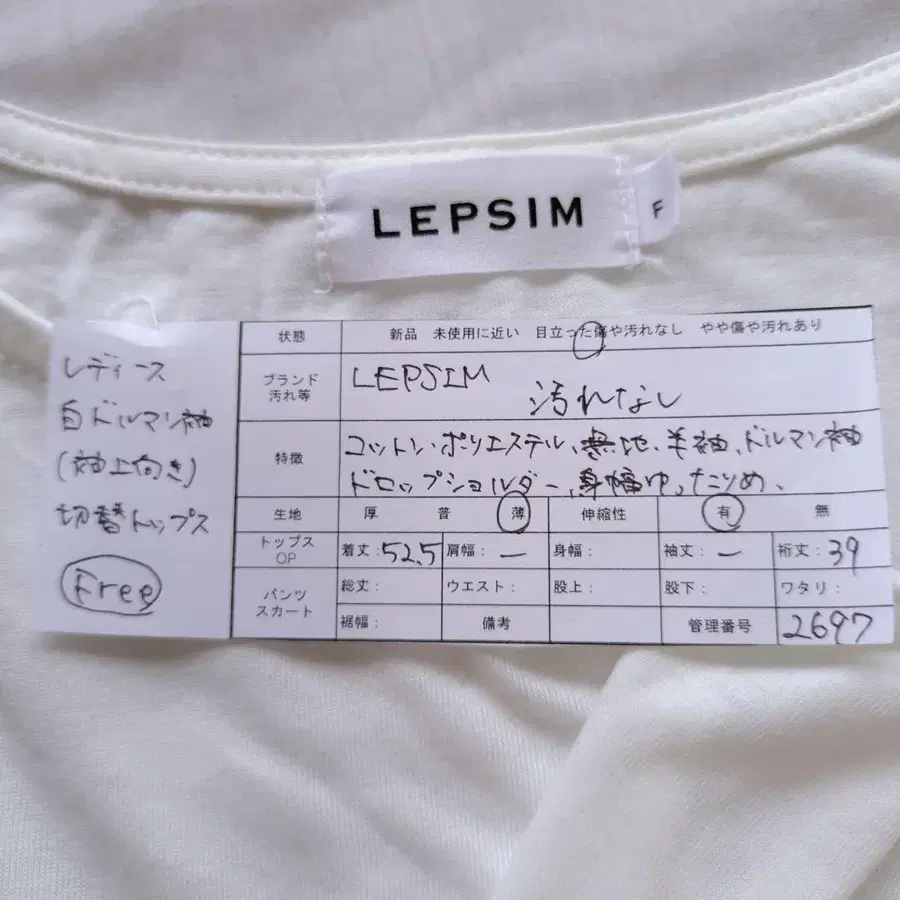 LEPSIM
F
レディース
白ドルマン袖
(袖上向き)
切替トップス
Free
状態 新品 未使用に近い 目立った傷や汚れなし やや傷や汚れあり
ブランド
汚れ等
LEPSIM
汚れなし
特徴
コットン・ポリエステル、無地、半袖、ドルマン袖
ドロップショルダー、身幅ゆったりめ、
生地 厚 普 薄 伸縮性 有 無
トップス
OP
着丈:52.5 肩幅:ー 身幅: 袖丈:ー 裄丈:39
パンツ
スカート
総丈: ウエスト: 股上: 股下: ワタリ:
裾幅: 備考 管理番号 2697